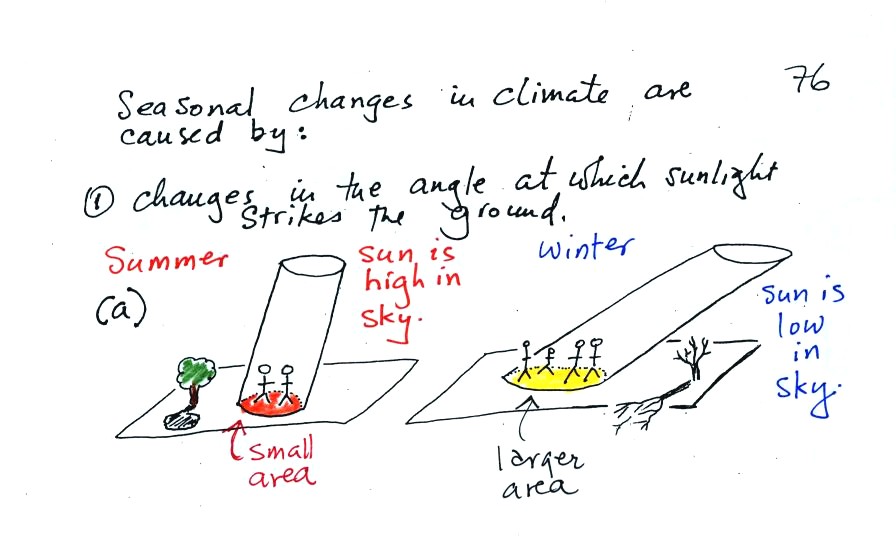 76
Seasonal changes in climate are
caused by:
① changes in the angle at which sunlight
strikes the ground.
Summer
(a)
sun is
high in
sky.
winter
sun is
low
in
sky.
small
area
larger
area